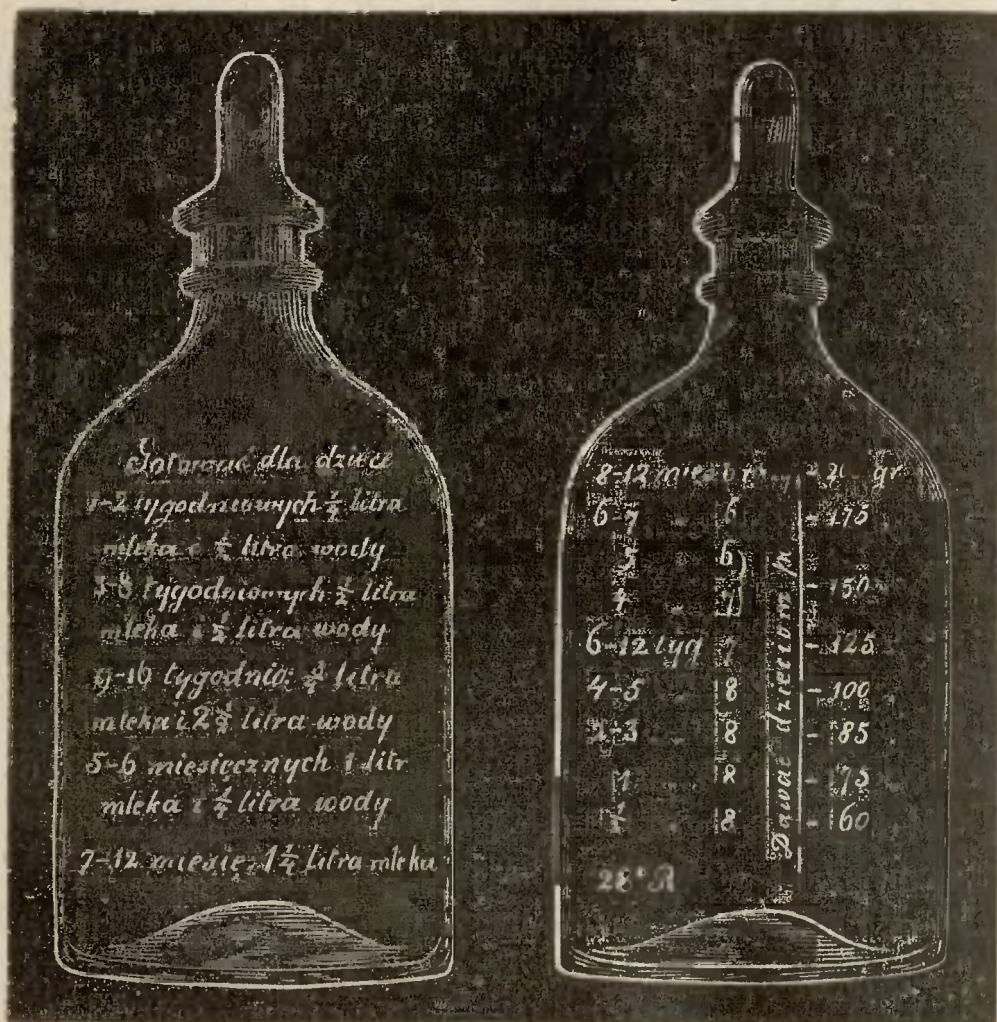 dla dzieci
1-2 tygodniowych ¼ litra
mleka i litra wody
5-8 tygodniowych ½ litra
mleka i ½ litra wody
9-16 tygodnio: ¾ litra
mleka i 2 litra wody
5-6 miesięcznych 1 litr
mleka i ¼ litra wody
7-12 miesię. 1¼ litra mleka
8-12 gr
6-7 „ 6 - 175
5 „ 6
4 „ 7 - 150 „
6-12 tyg 7 - 125
4-5 „ 8 - 100 „
2-3 „ 8 - 85 „
8 - 75 „
1 „ 8 - 60 „
Dawać dzieciom po
28° R